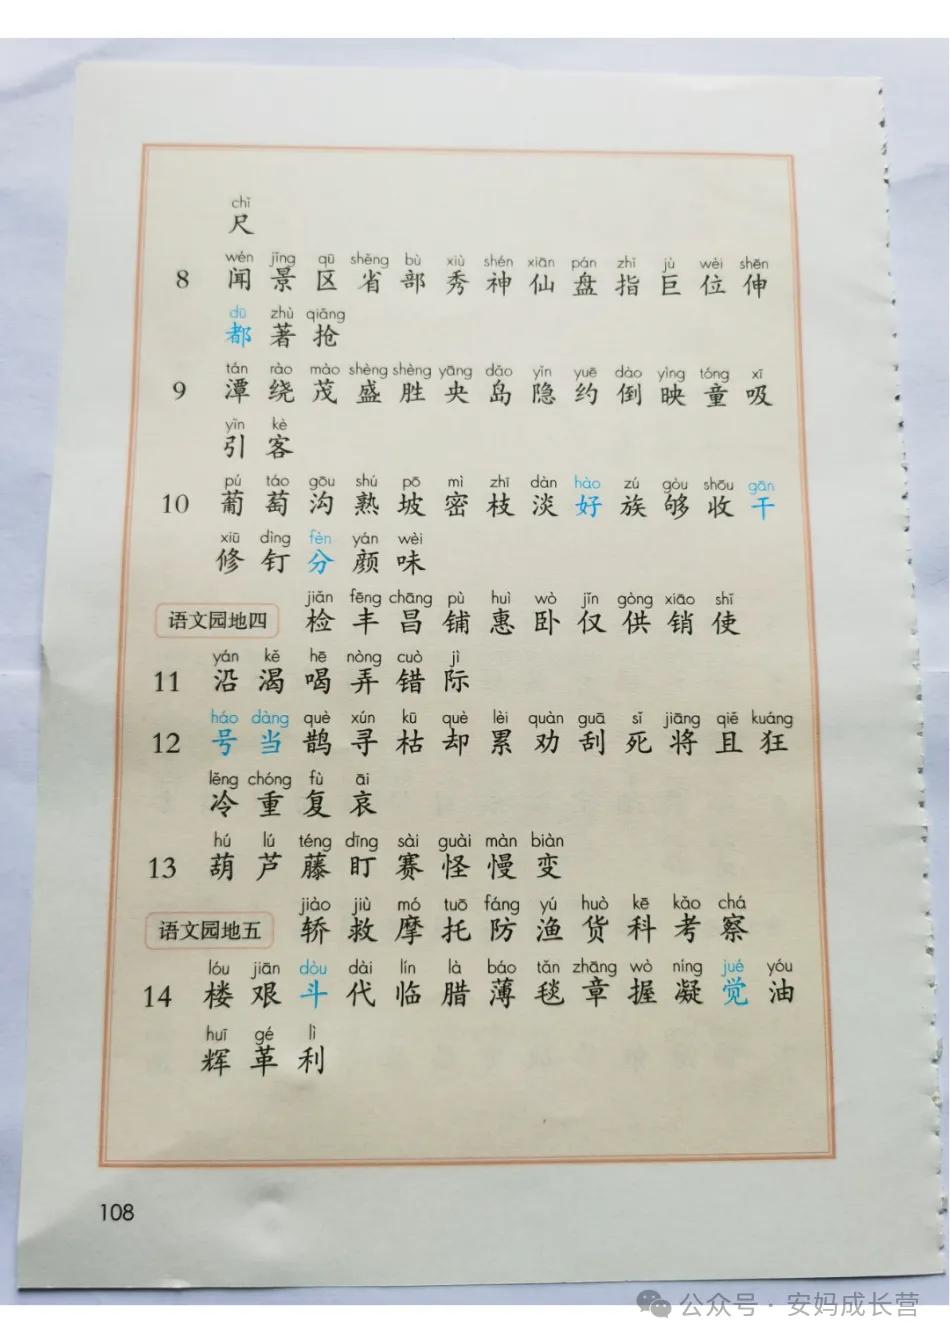 chǐ
尺
wén jǐng qū shěng bù xiù shén xiān pán zhǐ jù wèi shēn
8 闻 景 区 省 部 秀 神 仙 盘 指 巨 位 伸
dū zhù qiǎng
都 著 抢
tán rào mào shèng shèng yāng dǎo yǐn yuē dào yìng tóng xī
9 潭 绕 茂 盛 胜 央 岛 隐 约 倒 映 童 吸
yǐn kè
引 客
pú táo gōu shú pō mì zhī dàn hào zú gòu shōu gān
10 葡 萄 沟 熟 坡 密 枝 淡 好 族 够 收 干
xiū dìng fèn yán wèi
修 钉 分 颜 味
jiǎn fēng chāng pù huì wò jǐn gòng xiāo shǐ
语文园地四 检 丰 昌 铺 惠 卧 仅 供 销 使
yán kě hē nòng cuò jì
11 沿 渴 喝 弄 错 际
háo dàng què xún kū què lèi quàn guā sǐ jiāng qiě kuáng
12 号 当 鹊 寻 枯 却 累 劝 刮 死 将 且 狂
lěng chóng fù āi
冷 重 复 哀
hú lú téng dīng sài guài màn biàn
13 葫 芦 藤 盯 赛 怪 慢 变
jiào jiù mó tuō fáng yú huò kē kǎo chá
语文园地五 轿 救 摩 托 防 渔 货 科 考 察
lóu jiān dòu dài lín là báo tǎn zhāng wò níng jué yóu
14 楼 艰 斗 代 临 腊 薄 毯 章 握 凝 觉 油
huī gé lì
辉 革 利
108
公众号 · 安妈成长营